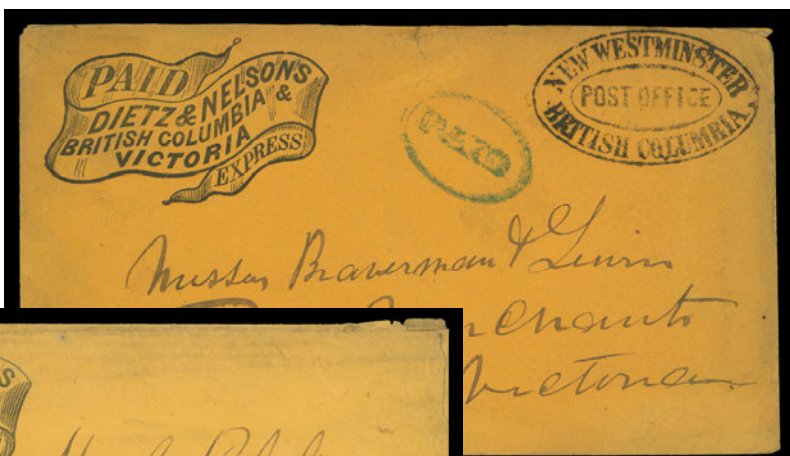 PAID
DIETZ & NELSON'S
BRITISH COLUMBIA &
VICTORIA
EXPRESS
PAID
NEW WESTMINSTER
POST OFFICE
BRITISH COLUMBIA
Messrs Braverman &
Victoria
S